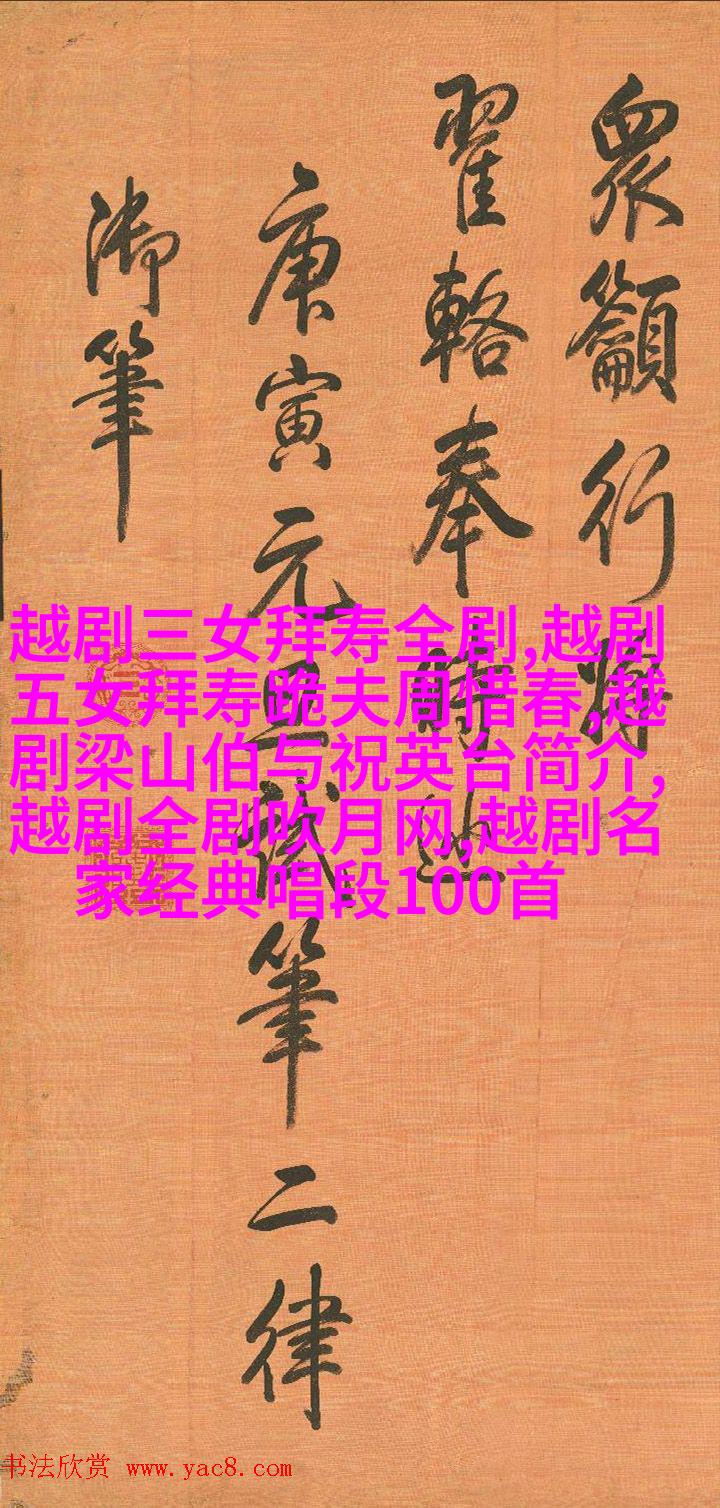 眾籲行將
翟輅奉時巡
庚寅元旦試筆二律
御筆
越剧三女拜寿全剧,越剧
五女拜寿跪夫周惜春,越
剧梁山伯与祝英台简介,
越剧全剧吹月网,越剧名
家经典唱段100首
书法欣赏 www.yac8.com